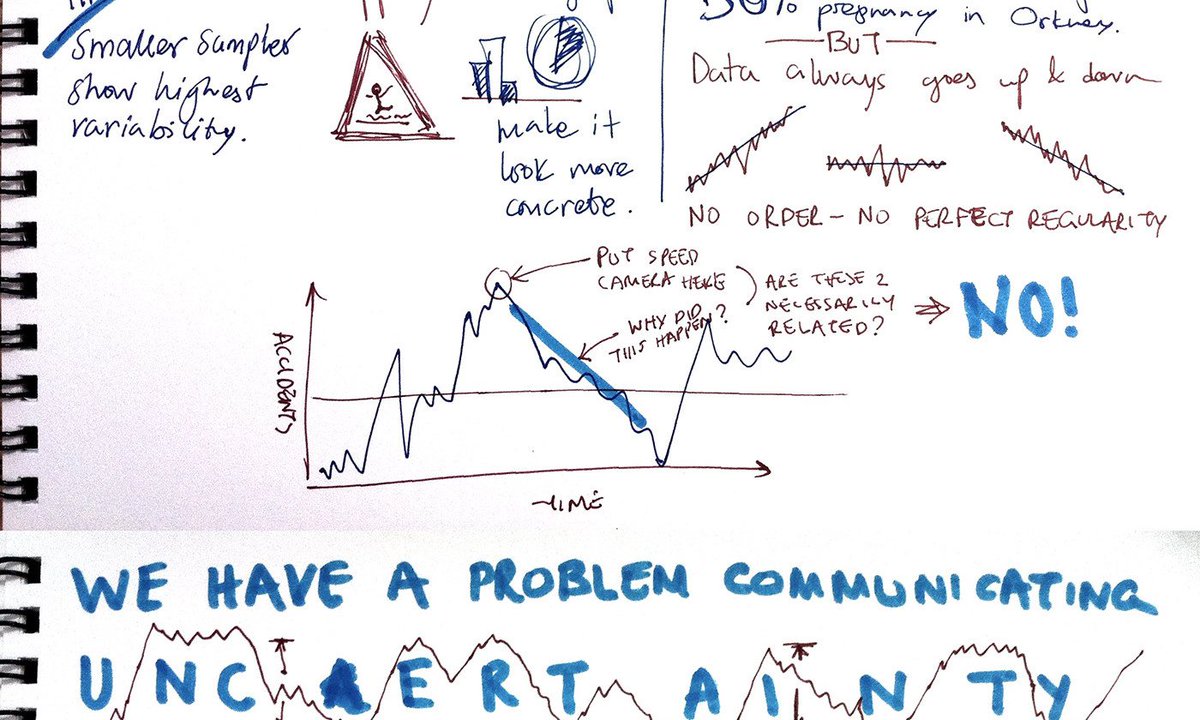 Smaller samples
show highest
variability.
make it
look more
concrete.
pregnancy in Orkney.
BUT
Data always goes up & down
NO ORDER - NO PERFECT REGULARITY
PUT SPEED
CAMERA HERE
WHY DID
THIS HAPPEN?
ARE THESE 2
NECESSARILY
RELATED?
NO!
ACCIDENTS
TIME
WE HAVE A PROBLEM COMMUNICATING
UNCERTAINTY